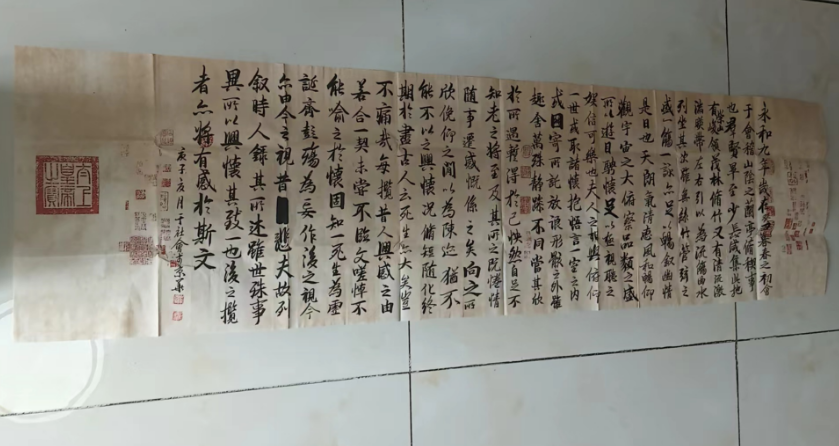 永和九年歲在癸丑暮春之初會
于會稽山陰之蘭亭脩稧事
也羣賢畢至少長咸集此地
有崇山峻領茂林脩竹又有清流激
湍暎帶左右引以為流觴曲水
列坐其次雖無絲竹管弦之
盛一觴一詠亦足以暢叙幽情
是日也天朗氣清惠風和暢仰
觀宇宙之大俯察品類之盛
所以遊目騁懷足以極視聽之
娛信可樂也夫人之相與俯仰
一世或取諸懷抱悟言一室之內
或因寄所託放浪形骸之外雖
趣舍萬殊靜躁不同當其欣
於所遇暫得於己快然自足不
知老之將至及其所之既惓情
隨事遷感慨係之矣向之所
欣俛仰之間以為陳迹猶不
能不以之興懷況脩短隨化終
期於盡古人云死生亦大矣豈
不痛哉每攬昔人興感之由
若合一契未嘗不臨文嗟悼不
能喻之於懷固知一死生為虛
誕齊彭殤為妄作後之視今
亦由今之視昔悲夫故列
叙時人錄其所述雖世殊事
異所以興懷其致一也後之攬
者亦將有感於斯文
庚子亥月于